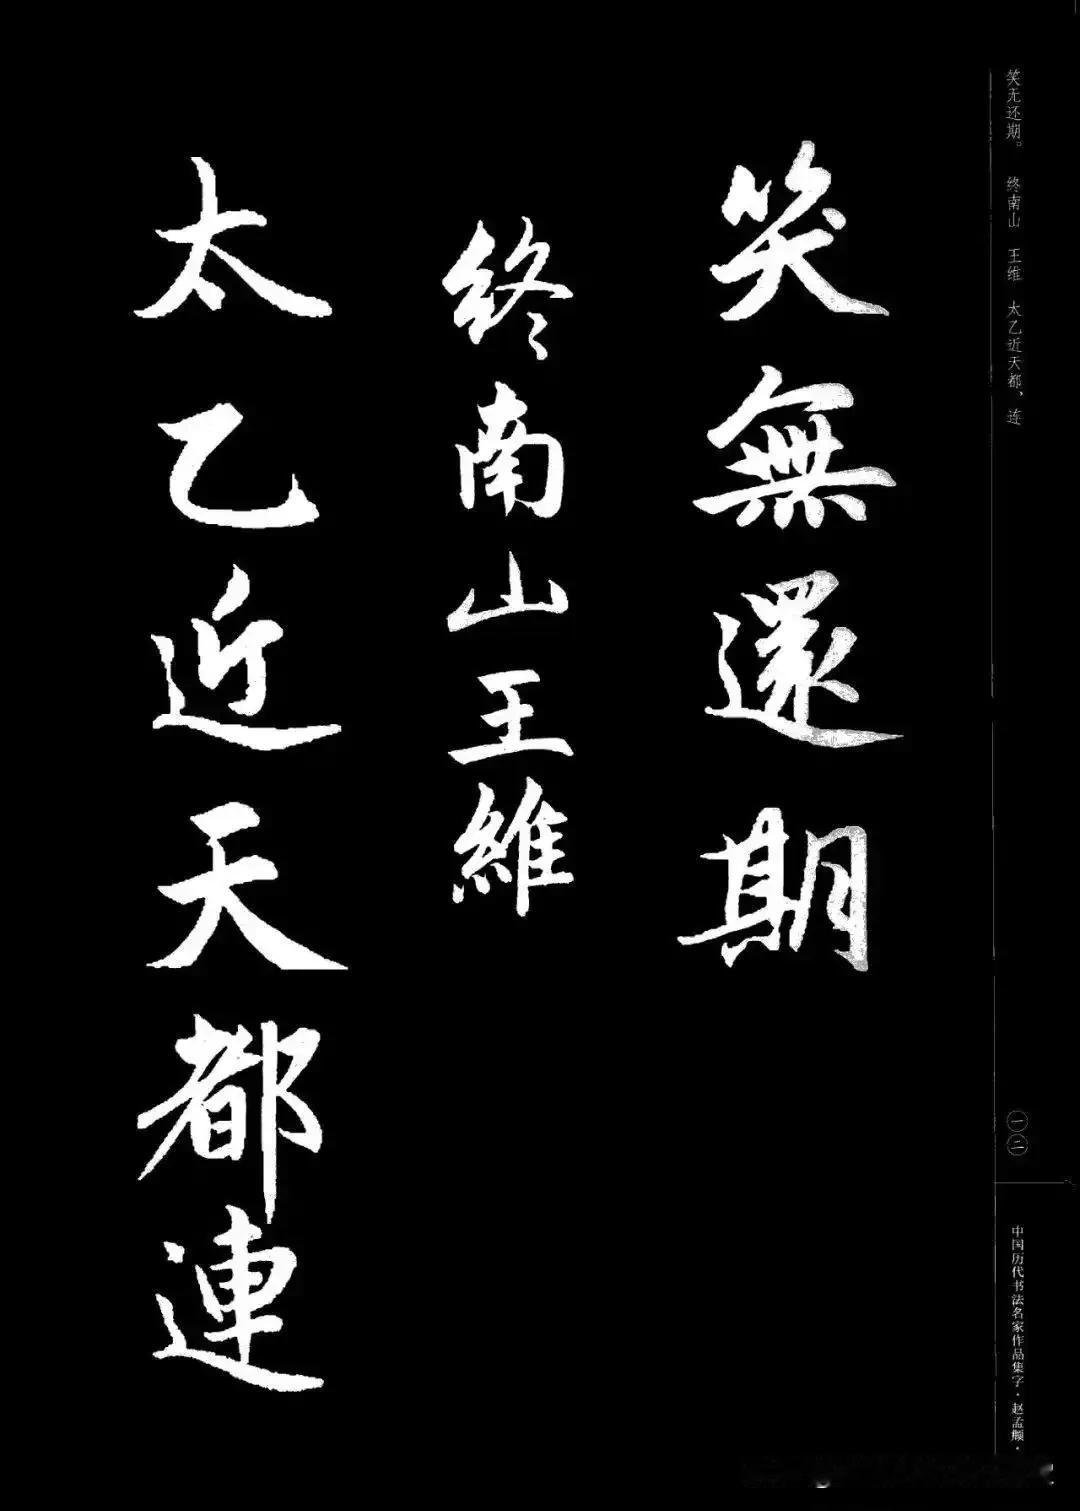 笑无还期。 终南山 王维 太乙近天都，连
一二
中国历代书法名家作品集字·赵孟頫·
笑無還期
終南山王維
太乙近天都連